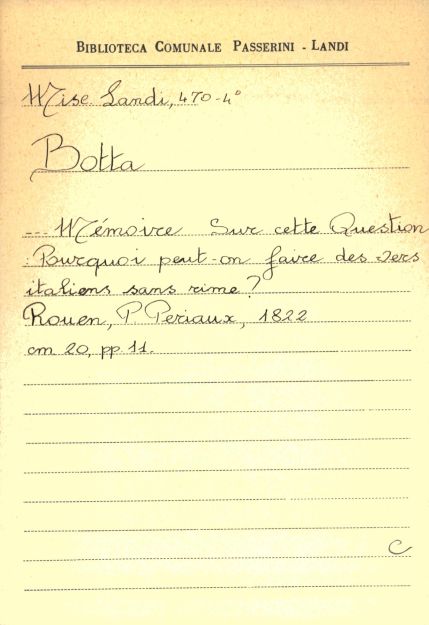 BIBLIOTECA COMUNALE PASSERINI - LANDI
Misc. Landi, 470-4°
Botta
--- Mémoire Sur cette Question
: Pourquoi peut-on faire des vers
italiens sans rime?
Rouen, P. Periaux, 1822
cm 20, pp 11.
C